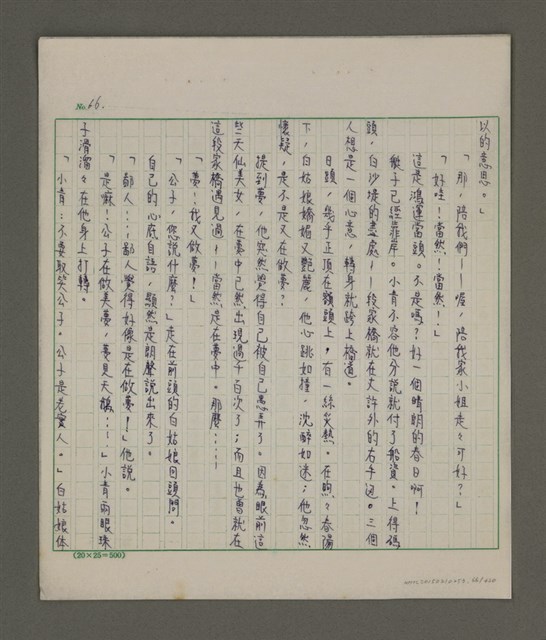 No. 66.
以的意思。」
「那,陪我們——喔,陪我家小姐走々可好?」
「好哇!當然!當然!」
這是鴻運當頭。不是嗎?好一個晴朗的春日啊!
艇子已經靠岸。小青不容他分說就付了船資。上得碼
頭,白沙堤的盡處——段家橋就在丈許外的右手邊。三個
人想是一個心意,轉身就跨上橋道。
日頭,幾乎正頂在額頭上,有一絲炎熱。在煦々春陽
下,白姑娘嬌媚又艷麗,他心跳如撞,沈醉如迷;他忽然
懷疑,是不是又在做夢?
提到夢,他突然覺得自己被自己愚弄了。因為眼前這
些天仙美女,在夢中已然出現過千百次了;而且也曾就在
這段家橋遇見過——當然是在夢中。那麼……
「夢!我又做夢!」
「公子,您說什麼?」走在前頭的白姑娘回頭問。
自己的心底自語,顯然是朗聲說出來了。
「鄙人……鄙人覺得好像是在做夢!」他說。
「是嘛!公子在做美夢,夢見天鵝……」小青兩眼珠
子滑溜々在他身上打轉。
「小青:不要取笑公子。公子是老實人。」白姑娘体
(20×25=500)